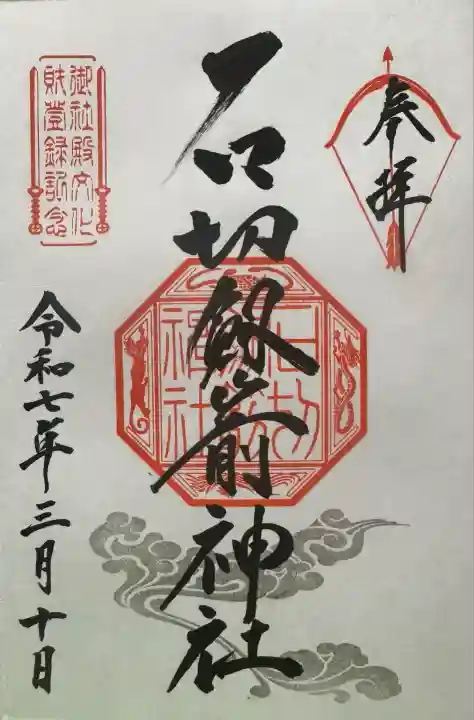 奉拝
石切劔箭神社
石切
劔箭
神社
御社殿文化
財登録記念
令和七年三月十日